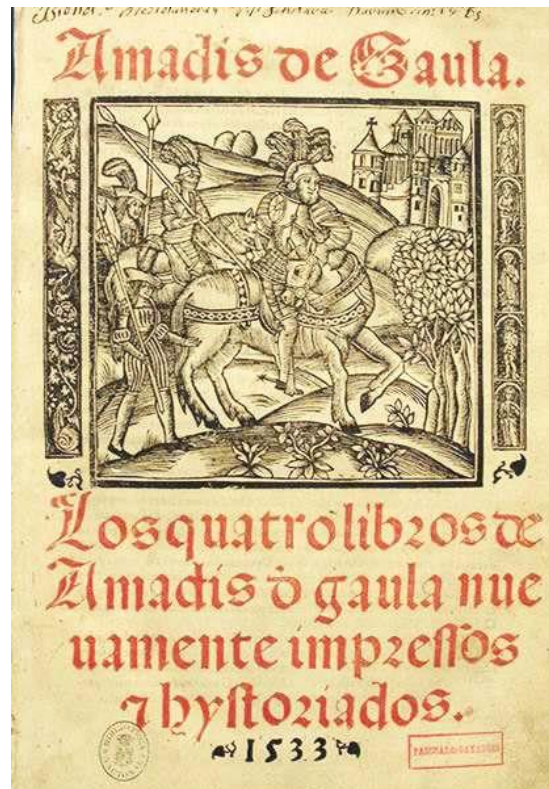 Amadis de Gaula.
Los quatro libros de
Amadis ḋ gaula nue
uamente impressos
⁊ hystoriados.
1533